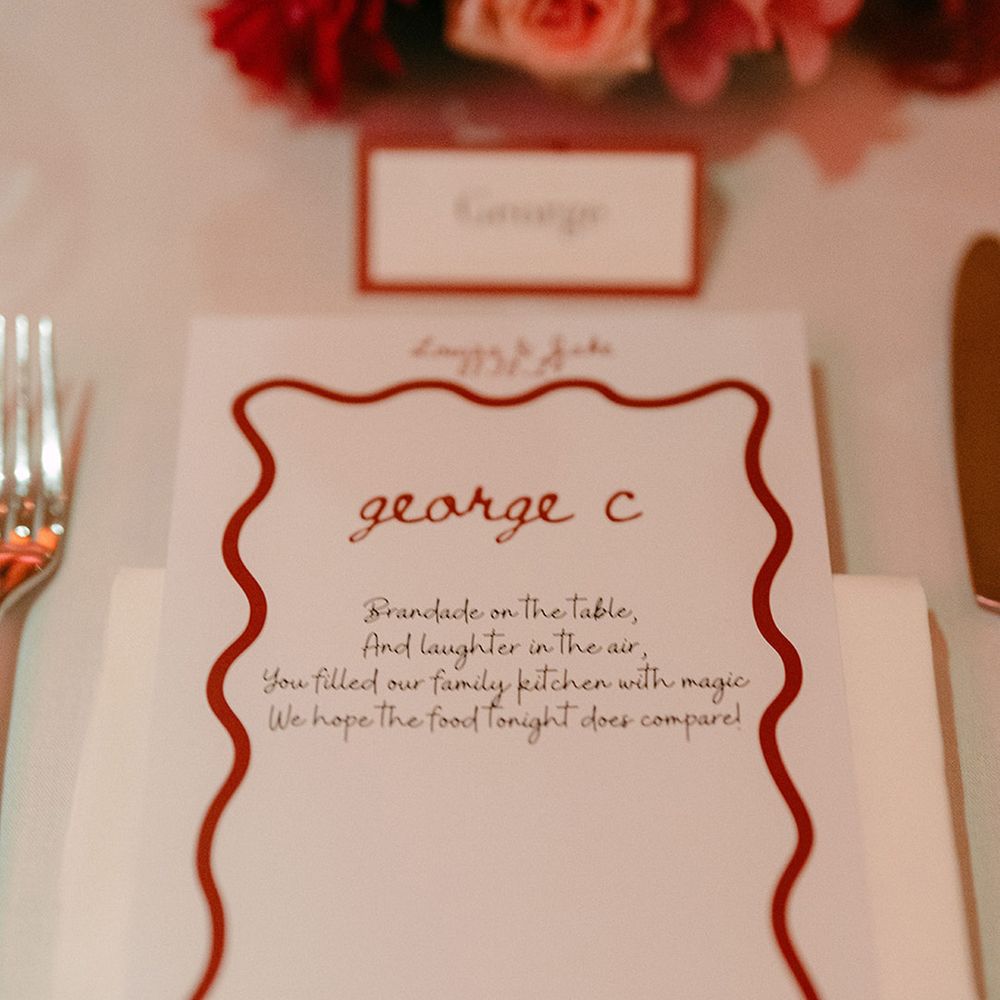 George
george c
Brandade on the table,
And laughter in the air,
You filled our family kitchen with magic
We hope the food tonight does compare!